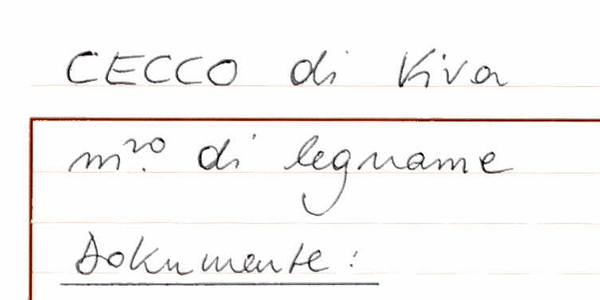 CECCO di Viva
m.ro di legname
Dokumente: